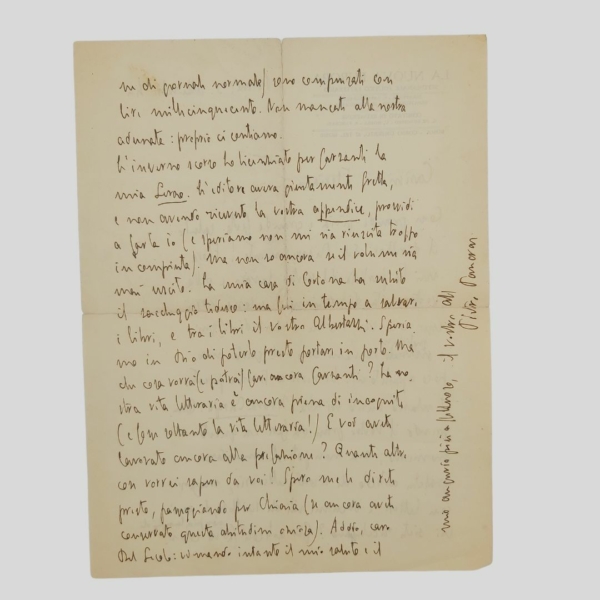 ni di giornali normale) sono compensati con
lire millecinquecento. Non mancate alla nostra
adunata: proprio ci contiamo.
L'inverno scorso ho licenziato per Garzanti la
mia Livao. L'editore aveva giustamente fretta,
e non avendo ricevuto la vostra appendice, provvidi
a farla io (e speriamo non mi sia riuscita troppo
incompiuta). Ma non so ancora se il volume sia
mai uscito. La mia casa di Cortona ha subito
il saccheggio tedesco: ma fui in tempo a salvare
i libri, e tra i libri il vostro Albertazzi. Speria
mo in Dio di poterlo presto portare in porto. Ma
che cosa vorrai (e potrai) fare ancora Garzanti? La no
stra vita letteraria è ancora piena di incogniti
(e fosse soltanto la vita letteraria!) E voi avete
lavorato ancora alla prefazione? Quanti altre
cose vorrei sapere da voi! Spero me le direte
presto, passeggiando per Chiaia (se ancora avete
conservato questa abitudine). Addio, caro
Del Secolo: vi mando intanto il mio saluto e il
mio augurio più affettuoso, il vostro aff
Pietro Pancrazi